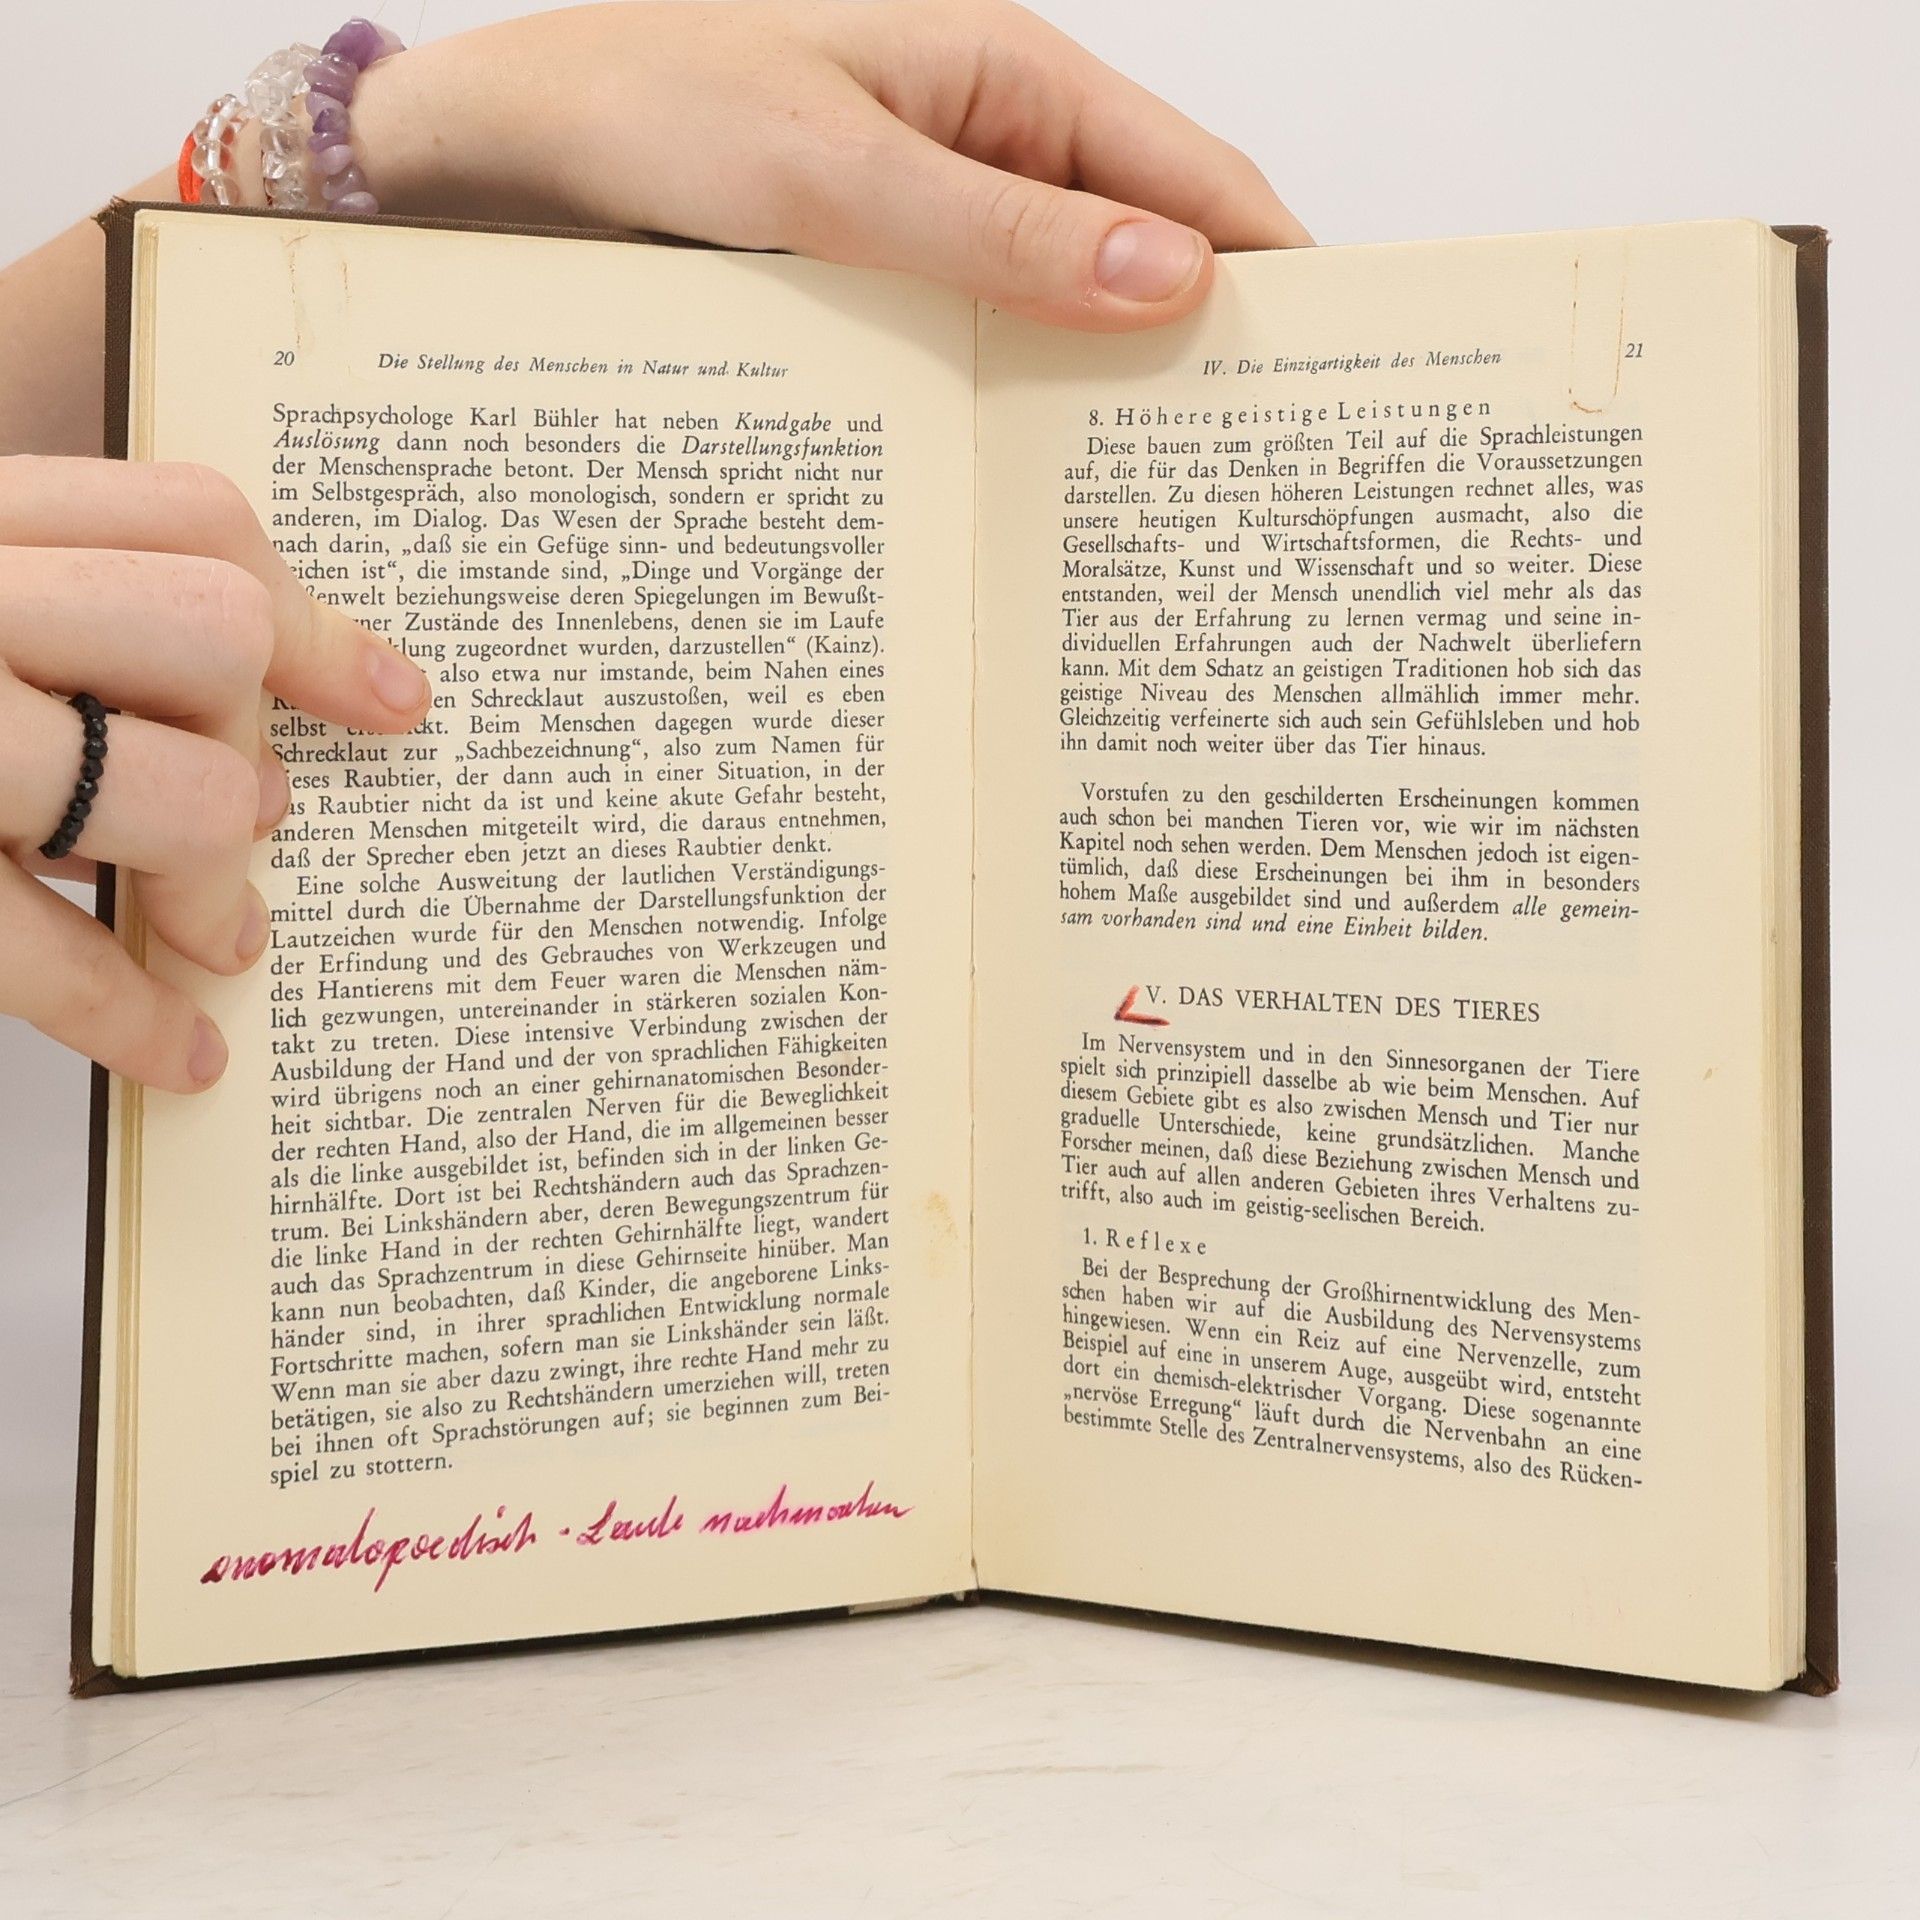 20 Die Stellung des Menschen in Natur und Kultur
Sprachpsychologe Karl Bühler hat neben Kundgabe und
Auslösung dann noch besonders die Darstellungsfunktion
der Menschensprache betont. Der Mensch spricht nicht nur
im Selbstgespräch, also monologisch, sondern er spricht zu
anderen, im Dialog. Das Wesen der Sprache besteht dem-
nach darin, „daß sie ein Gefüge sinn- und bedeutungsvoller
eichen ist“, die imstande sind, „Dinge und Vorgänge der
ßenwelt beziehungsweise deren Spiegelungen im Bewußt-
Zustände des Innenlebens, denen sie im Laufe
klung zugeordnet wurden, darzustellen“ (Kainz).
also etwa nur imstande, beim Nahen eines
en Schrecklaut auszustoßen, weil es eben
selbst ckt. Beim Menschen dagegen wurde dieser
Schrecklaut zur „Sachbezeichnung“, also zum Namen für
ieses Raubtier, der dann auch in einer Situation, in der
as Raubtier nicht da ist und keine akute Gefahr besteht,
anderen Menschen mitgeteilt wird, die daraus entnehmen,
daß der Sprecher eben jetzt an dieses Raubtier denkt.
Eine solche Ausweitung der lautlichen Verständigungs-
mittel durch die Übernahme der Darstellungsfunktion der
Lautzeichen wurde für den Menschen notwendig. Infolge
der Erfindung und des Gebrauches von Werkzeugen und
des Hantierens mit dem Feuer waren die Menschen näm-
lich gezwungen, untereinander in stärkeren sozialen Kon-
takt zu treten. Diese intensive Verbindung zwischen der
Ausbildung der Hand und der von sprachlichen Fähigkeiten
wird übrigens noch an einer gehirnanatomischen Besonder-
heit sichtbar. Die zentralen Nerven für die Beweglichkeit
der rechten Hand, also der Hand, die im allgemeinen besser
als die linke ausgebildet ist, befinden sich in der linken Ge-
hirnhälfte. Dort ist bei Rechtshändern auch das Sprachzen-
trum. Bei Linkshändern aber, deren Bewegungszentrum für
die linke Hand in der rechten Gehirnhälfte liegt, wandert
auch das Sprachzentrum in diese Gehirnseite hinüber. Man
kann nun beobachten, daß Kinder, die angeborene Links-
händer sind, in ihrer sprachlichen Entwicklung normale
Fortschritte machen, sofern man sie Linkshänder sein läßt.
Wenn man sie aber dazu zwingt, ihre rechte Hand mehr zu
betätigen, sie also zu Rechtshändern umerziehen will, treten
bei ihnen oft Sprachstörungen auf; sie beginnen zum Bei-
spiel zu stottern.
onomatopoedisch - Laute nachmachen
IV. Die Einzigartigkeit des Menschen 21
8. Höhere geistige Leistungen
Diese bauen zum größten Teil auf die Sprachleistungen
auf, die für das Denken in Begriffen die Voraussetzungen
darstellen. Zu diesen höheren Leistungen rechnet alles, was
unsere heutigen Kulturschöpfungen ausmacht, also die
Gesellschafts- und Wirtschaftsformen, die Rechts- und
Moralsätze, Kunst und Wissenschaft und so weiter. Diese
entstanden, weil der Mensch unendlich viel mehr als das
Tier aus der Erfahrung zu lernen vermag und seine in-
dividuellen Erfahrungen auch der Nachwelt überliefern
kann. Mit dem Schatz an geistigen Traditionen hob sich das
geistige Niveau des Menschen allmählich immer mehr.
Gleichzeitig verfeinerte sich auch sein Gefühlsleben und hob
ihn damit noch weiter über das Tier hinaus.
Vorstufen zu den geschilderten Erscheinungen kommen
auch schon bei manchen Tieren vor, wie wir im nächsten
Kapitel noch sehen werden. Dem Menschen jedoch ist eigen-
tümlich, daß diese Erscheinungen bei ihm in besonders
hohem Maße ausgebildet sind und außerdem alle gemein-
sam vorhanden sind und eine Einheit bilden.
V. DAS VERHALTEN DES TIERES
Im Nervensystem und in den Sinnesorganen der Tiere
spielt sich prinzipiell dasselbe ab wie beim Menschen. Auf
diesem Gebiete gibt es also zwischen Mensch und Tier nur
graduelle Unterschiede, keine grundsätzlichen. Manche
Forscher meinen, daß diese Beziehung zwischen Mensch und
Tier auch auf allen anderen Gebieten ihres Verhaltens zu-
trifft, also auch im geistig-seelischen Bereich.
1. Reflexe
Bei der Besprechung der Großhirnentwicklung des Men-
schen haben wir auf die Ausbildung des Nervensystems
hingewiesen. Wenn ein Reiz auf eine Nervenzelle, zum
Beispiel auf eine in unserem Auge, ausgeübt wird, entsteht
dort ein chemisch-elektrischer Vorgang. Diese sogenannte
„nervöse Erregung“ läuft durch die Nervenbahn an eine
bestimmte Stelle des Zentralnervensystems, also des Rücken-